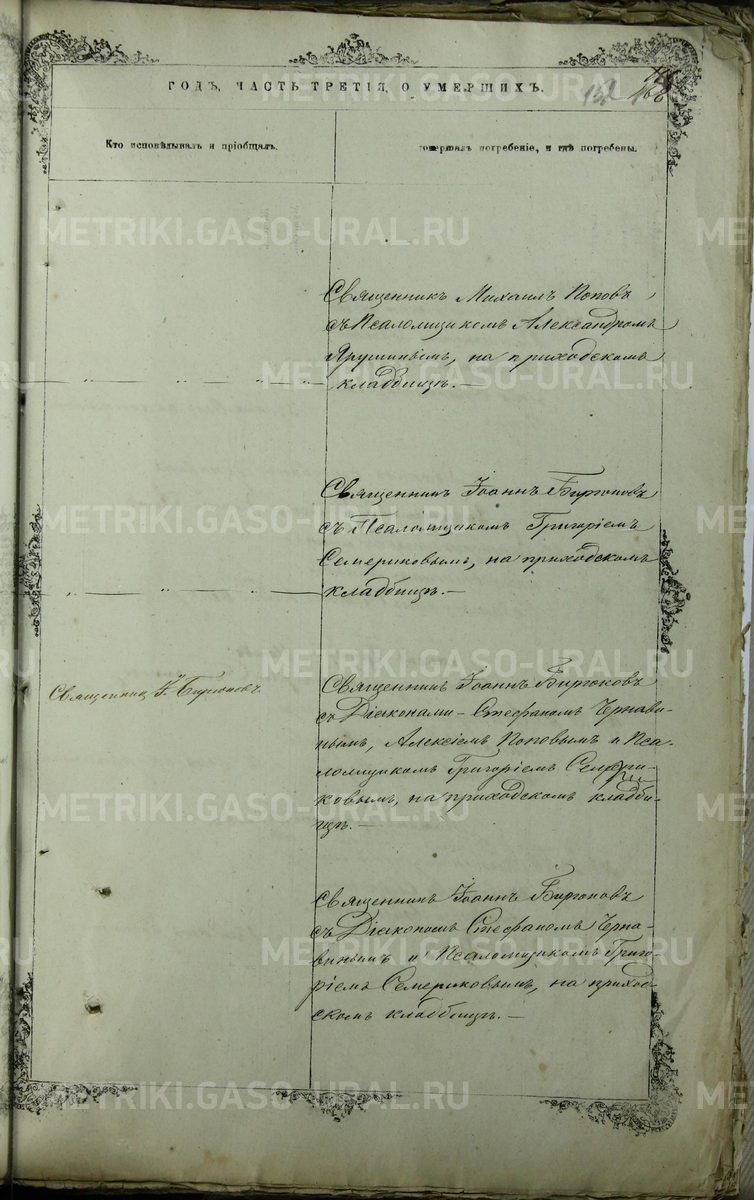 ГОДЪ, ЧАСТЬ ТРЕТІЯ, О УМЕРШИХЪ.
Кто исповѣдывалъ и пріобщалъ.
совершалъ погребеніе, и гдѣ погребены.
Священникъ Михаилъ Поповъ
съ Псаломщикомъ Александромъ
Ярушинымъ, на приходскомъ
кладбищѣ. —
Священникъ Іоаннъ Бирюковъ
съ Псаломщикомъ Григоріемъ
Семериковымъ, на приходскомъ
кладбищѣ. —
Священникъ І. Бирюковъ
Священникъ Іоаннъ Бирюковъ
съ Діаконами – Стефаномъ Черна­ви-
нымъ, Алексіемъ Поповымъ и Пса-
ломщикомъ Григоріемъ Семери-
ковымъ, на приходскомъ кладби-
щѣ. —
Священникъ Іоаннъ Бирюковъ
съ Діакономъ Стефаномъ Черна-
винымъ и Псаломщикомъ Григо-
ріемъ Семериковымъ, на приход-
скомъ кладбищѣ. —
METRIKI.GASO-URAL.RU